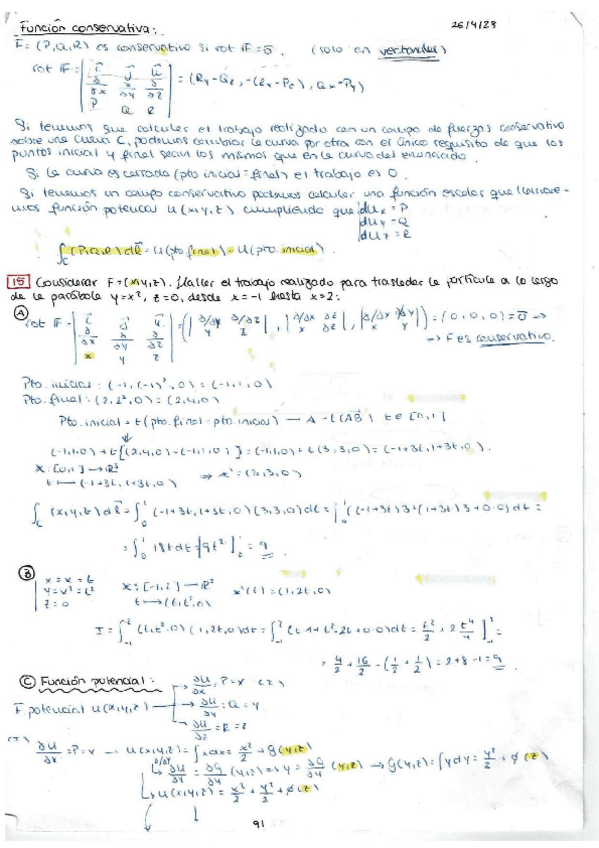 Función conservativa: 26/4/23
F = (P,Q,R) es conservativo si rot F = 0. (solo en vertandes)
rot F = | i j k | ∂/∂x ∂/∂y ∂/∂z | P Q R | = (Ry-Qz, -(Rx-Pz), Qx-Py)
Si tenemos que calcular el trabajo realizado con un campo de fuerzas conservativo
sobre una curva C, podemos cambiar la curva por otra con el único requisito de que los
puntos inicial y final sean los mismos que en la curva del enunciado.
Si la curva es cerrada (pto inicial = final) el trabajo es 0.
Si tenemos un campo conservativo podemos calcular una función escalar que llamare-
mos función potencial u(x,y,z) cumpliendo que | dux = P
duy = Q
duz = R
∫C (P,Q,R) dR = u(pto. final) - u(pto. inicial)
15 Considerar F=(x,y,z). Hallar el trabajo realizado para trasladar la partícula a lo largo
de la parábola y=x², z=0, desde x=-1 hasta x=2:
A
rot F = | i j k | ∂/∂x ∂/∂y ∂/∂z | x y z | = (| ∂/∂y ∂/∂z | y z |, | ∂/∂x ∂/∂z | x z |, | ∂/∂x ∂/∂y | x y |) = (0,0,0) = 0 ⇒
→ F es conservativo.
Pto. inicial: (-1,(-1)²,0) = (-1,1,0)
Pto. final: (2,2²,0) = (2,4,0)
Pto. inicial + t(pto. final - pto. inicial) — A + t(AB) t∈[0,1]
(-1,1,0) + t[(2,4,0) - (-1,1,0)] = (-1,1,0) + t(3,3,0) = (-1+3t, 1+3t, 0).
x: [0,1] → R³
t → (-1+3t, 1+3t, 0) ⇒ x' = (3,3,0)
∫C (x,y,z) dR = ∫₀¹ (-1+3t, 1+3t, 0)(3,3,0) dt = ∫₀¹ ((-1+3t)3 + (1+3t)3 + 0·0) dt =
= ∫₀¹ 18t dt = 9t² ]₀¹ = 9
B
x = x = t
y = x² = t²
z = 0
x: [-1,2] → R³ x'(t) = (1,2t,0)
t → (t,t²,0)
I = ∫₋₁² (t,t²,0)(1,2t,0) dt = ∫₋₁² (t·1 + t²·2t + 0·0) dt = t²/2 + 2 t⁴/4 ]₋₁² =
= 4/2 + 16/2 - (1/2 + 1/2) = 2+8-1 = 9
C Función potencial:
F. potencial u(x,y,z) → ∂u/∂x = P = x
→ ∂u/∂y = Q = y
→ ∂u/∂z = R = z
∂u/∂x = P = x → u(x,y,z) = ∫x dx = x²/2 + g(y,z)
∂/∂y ∂u/∂y = ∂g/∂y (y,z) ⇒ y = ∂g/∂y (y,z) → g(y,z) = ∫y dy = y²/2 + φ(z)
u(x,y,z) = x²/2 + y²/2 + φ(z)
91